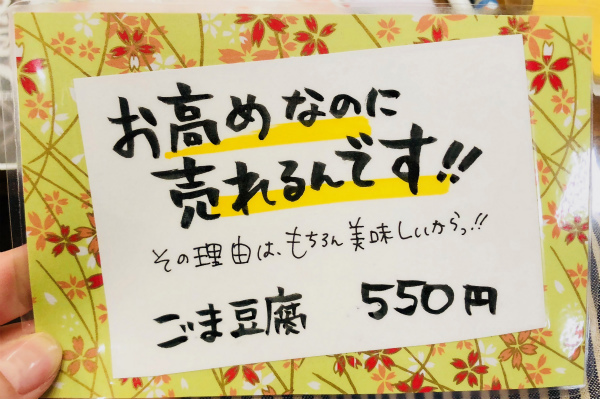 お高めなのに
売れるんです!!
その理由は、もちろん美味しいからっ!!
ごま豆腐 550円